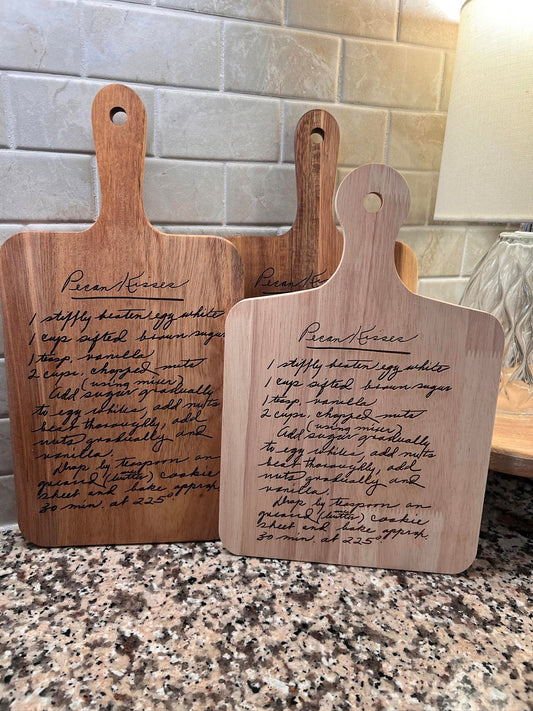 Pecan Kisses
1 stiffly beaten egg white
1 cup sifted brown sugar
1 teasp. vanilla
2 cups, chopped nuts
(using mixer)
Add sugar gradually
to egg whites, add nuts
beat thoroughly, add
nuts gradually and
vanilla.
Drop by teaspoon on
greased (butter) cookie
sheet and bake approp.
30 min. at 225°
Pecan Kisses
Pecan Kisses
1 stiffly beaten egg white
1 cup sifted brown sugar
1 teasp. vanilla
2 cups, chopped nuts
(using mixer)
Add sugar gradually
to egg whites, add nuts
beat thoroughly, add
nuts gradually and
vanilla.
Drop by teaspoon on
greased (butter) cookie
sheet and bake approp.
30 min. at 225°